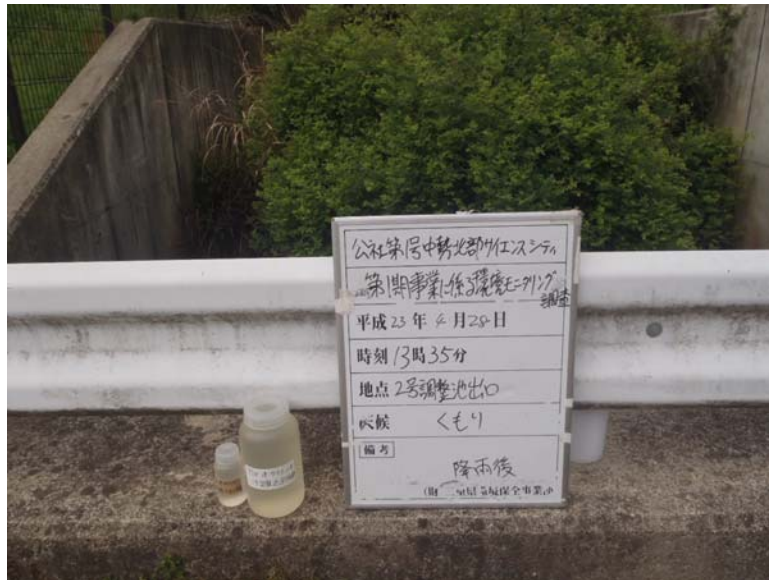 公社第1号中勢北部サイエンスシティ
第1期事業に係る環境モニタリング
調査
平成23年4月28日
時刻13時35分
地点 2号調整池出口
天候 くもり
備考
降雨後
(財)三重県環境保全事業団